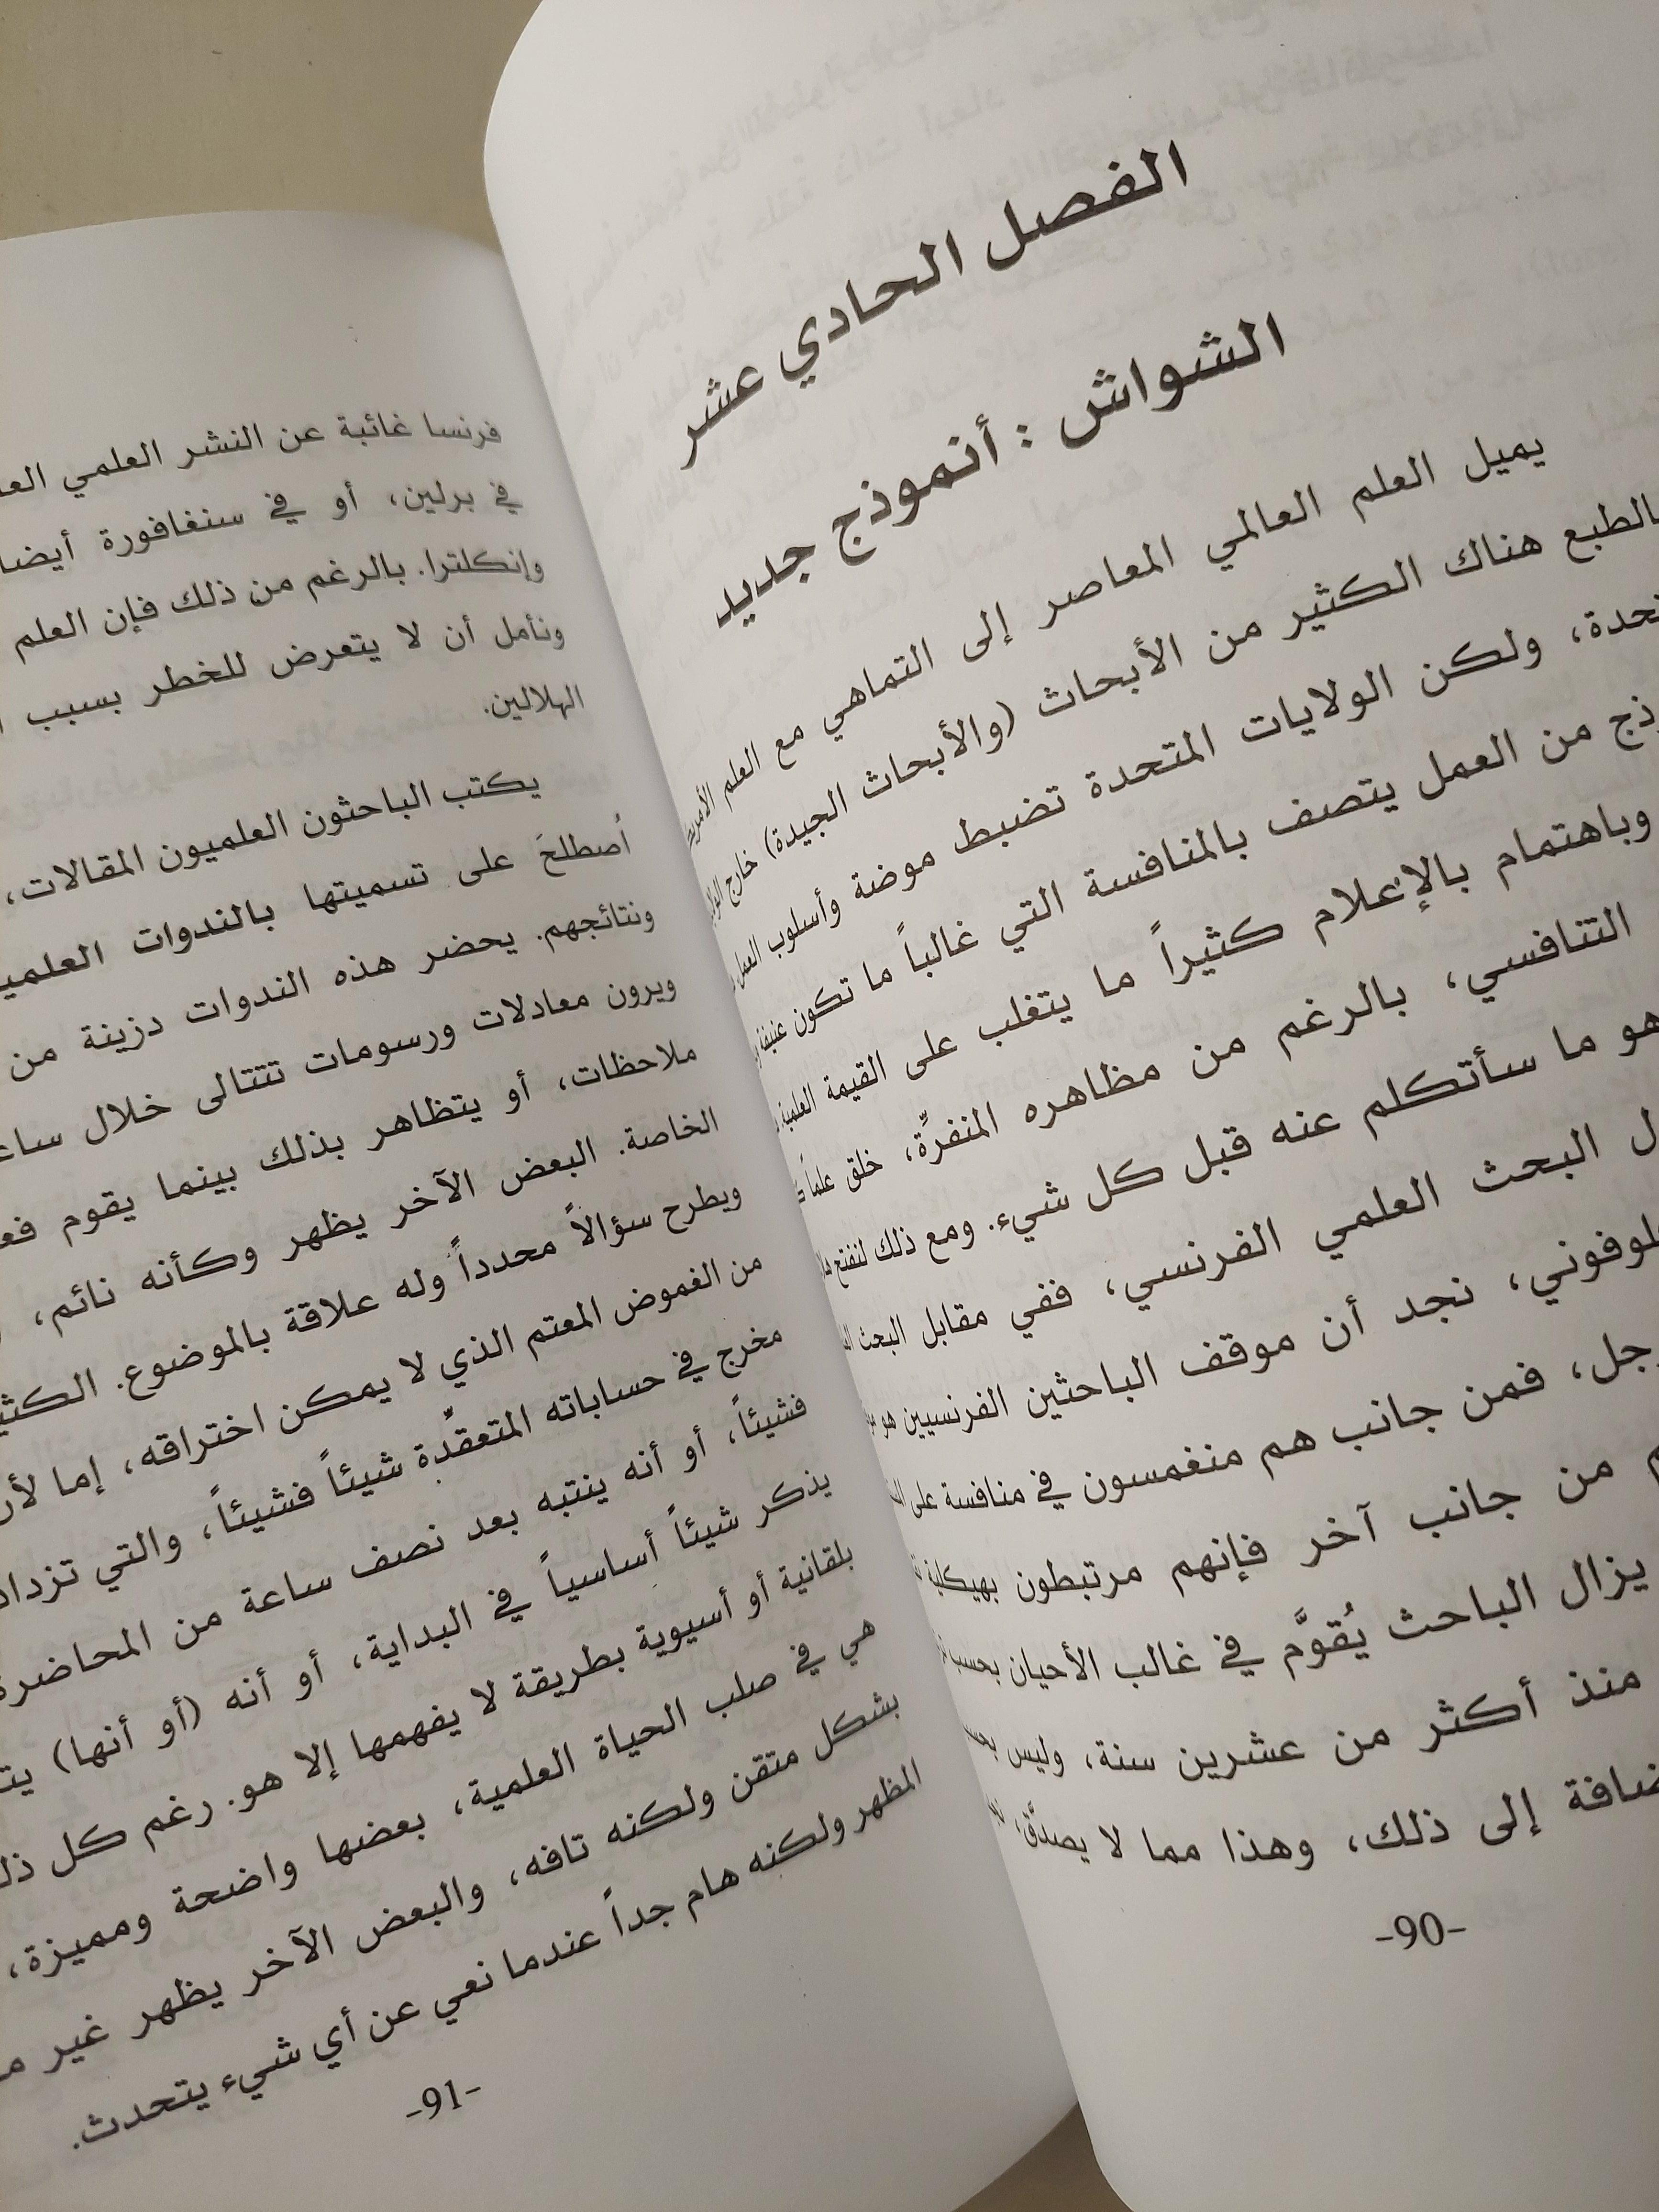 الفصل الحادي عشر
الشواش : أنموذج جديد
يميل العلم العالمي المعاصر إلى التماهي مع العلم
هناك الكثير من الأبحاث (والأبحاث الجيدة) خارج
ولكن الولايات المتحدة تضبط موضة وأسلوب العمل
من العمل يتصف بالمنافسة التي غالباً ما تكون عنيفة
وباهتمام بالإعلام كثيراً ما يتغلب على القيمة العلمية
التنافسي، بالرغم من مظاهره المنفرِّة، خلق علماً
هو ما سأتكلم عنه قبل كل شيء. ومع ذلك لنفتح
البحث العلمي الفرنسي، ففي مقابل البحث
نجد أن موقف الباحثين الفرنسيين هو
فمن جانب هم منغمسون في منافسة على
من جانب آخر فإنهم مرتبطون بهيكلية
يزال الباحث يُقوَّم في غالب الأحيان بحسب
منذ أكثر من عشرين سنة، وليس
إلى ذلك، وهذا مما لا يصدَّق،
-90-
فرنسا غائبة عن النشر العلمي
في برلين، أو في سنغافورة أيضا
وإنكلترا. بالرغم من ذلك فإن العلم
ونأمل أن لا يتعرض للخطر بسبب
الهلالين.
يكتب الباحثون العلميون المقالات،
أصطلحَ على تسميتها بالندوات
ونتائجهم. يحضر هذه الندوات دزينة من
ويرون معادلات ورسومات تتتالى خلال
ملاحظات، أو يتظاهر بذلك بينما يقوم
الخاصة. البعض الآخر يظهر وكأنه نائم،
ويطرح سؤالاً محدداً وله علاقة بالموضوع.
من الغموض المعتم الذي لا يمكن اختراقه، إما
مخرج في حساباته المتعقِّدة شيئاً فشيئاً، والتي
فشيئاً، أو أنه ينتبه بعد نصف ساعة من
يذكر شيئاً أساسياً في البداية، أو أنه (أو أنها)
بلقانية أو أسيوية بطريقة لا يفهمها إلا هو. رغم كل
هي في صلب الحياة العلمية، بعضها واضحة ومميزة،
بشكل متقن ولكنه تافه، والبعض الآخر يظهر غير
المظهر ولكنه هام جداً عندما نعي عن أي شيء يتحدث.
-91-